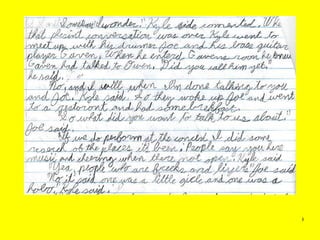 I wonder," Kyle side comented. When
that plesint conversation was over Kyle went to
meet up with his drummer Joe and his base guitar
player Gaven. When he enterd Gavens room he knew
Gaven had talked to Owen. "Did you call him yet,"
he said.
"No, and I will when I'm done talking to you
and Joe, Kyle said. So they woke up Joe and went
to a restront and had some breckfast.
"So what did you want to talk to us about."
Joe said.
"If we do perform at the concert, I did some
reserch of the places its been. People say you here
music and cheering when there not open." Kyle said.
"Yea, people who are freeks and liyers" Joe said.
"No, it said one was a little girl and one was a
hobo, Kyle said.